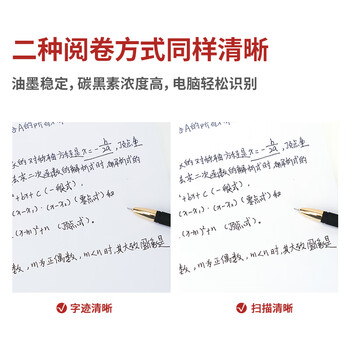 二种阅卷方式同样清晰
油墨稳定，碳黑素浓度高，电脑轻松识别
义的对称轴方程是x=-b/2a，顶点
去求二次函数的解析式时，解析式的
+bx+c (一般式)
(x-x₁)·(x-x₂) (零点式)和
(x-m)²+n (顶点式)。
数，m为正偶数，m<n时，其大致图象是
义的对称轴方程是x=-b/2a，顶点
去求二次函数的解析式时，解析式的
+bx+c (一般式)
(x-x₁)·(x-x₂) (零点式)和
(x-m)²+n (顶点式)。
数，m为正偶数，m<n时，其大致图象是
字迹清晰
扫描清晰